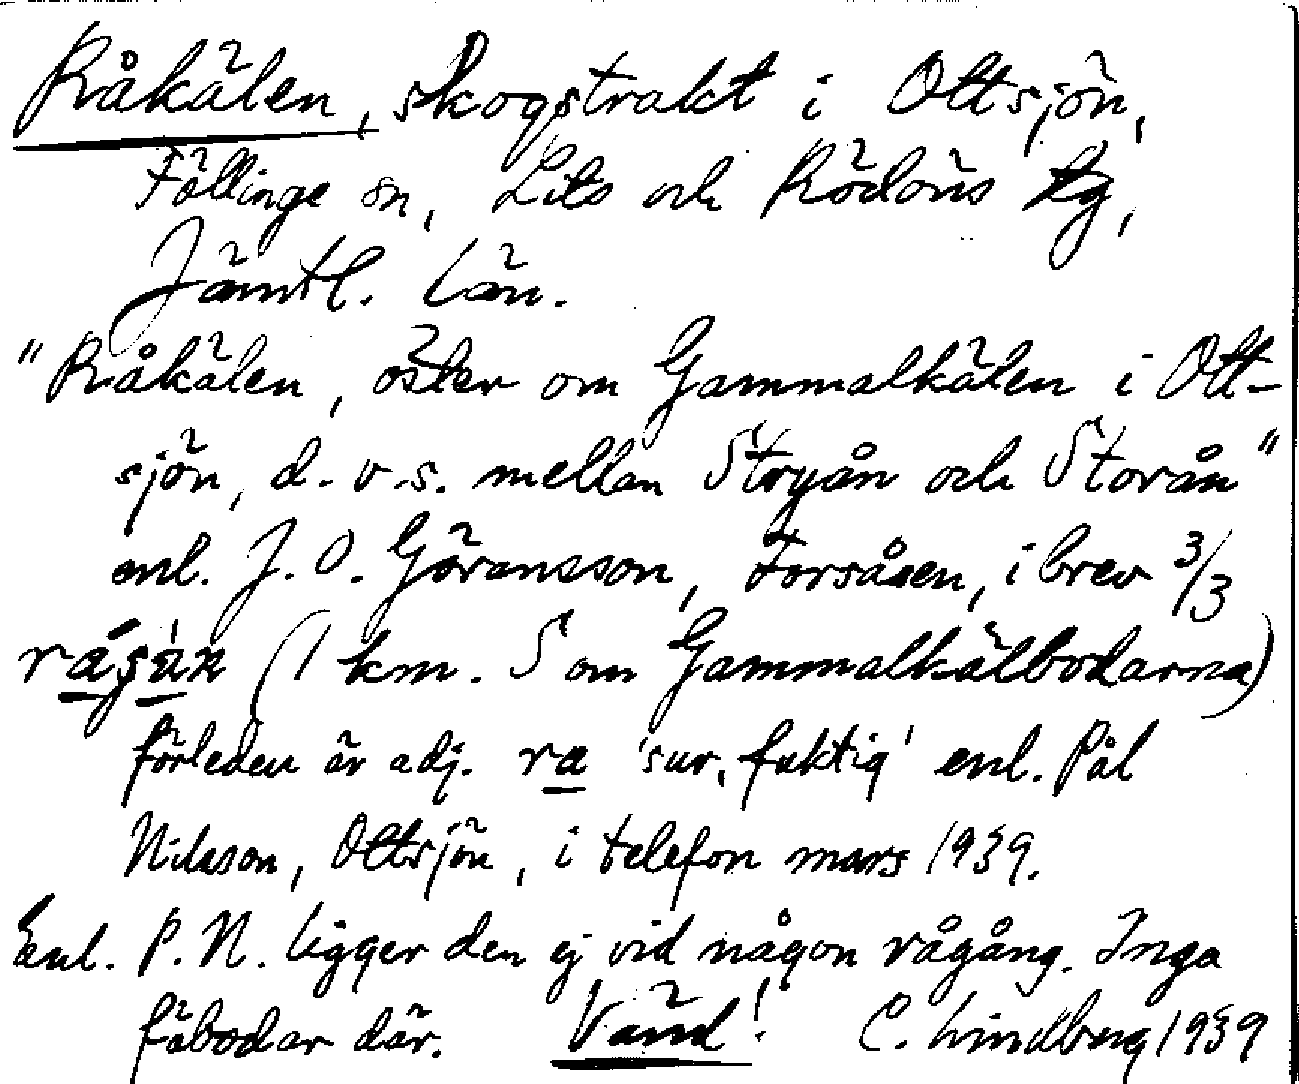 Råkälen, skogstrakt i Ottsjön,
Föllinge sn, Lits och Rödöns tg,
Jämtl. län.
"Råkälen, öster om Gammalkälen i Ott-
sjön, d.v.s. mellan Stryån och Storån"
enl. J. O. Göransson, Forsåsen, i brev 3/3
(1 km. S om Gammalkälbodarna)
förleden är adj. ra 'sur, fuktig' enl. Pål
Nilsson, Ottsjön, i telefon mars 1939.
Enl. P. N. ligger den ej vid någon rågång. Inga
fäbodar där. Vänd! C. Lindberg 1939